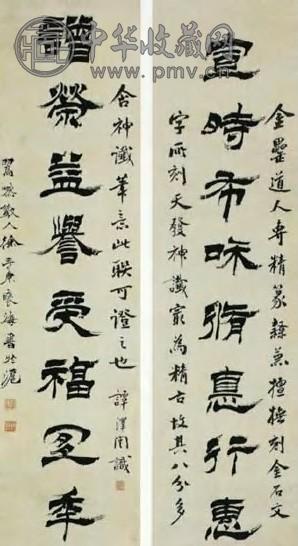 中华收藏网
www.pmv.cn
宣時布咊脩惪行惠
金罍道人專精篆隸兼擅橅刻金石文
字所刻天發神讖最為精古故其八分多
增榮益譽受福多秊
含神讖筆意此聯可證之也 譚澤闓識
散人徐三庚褎海書於滬